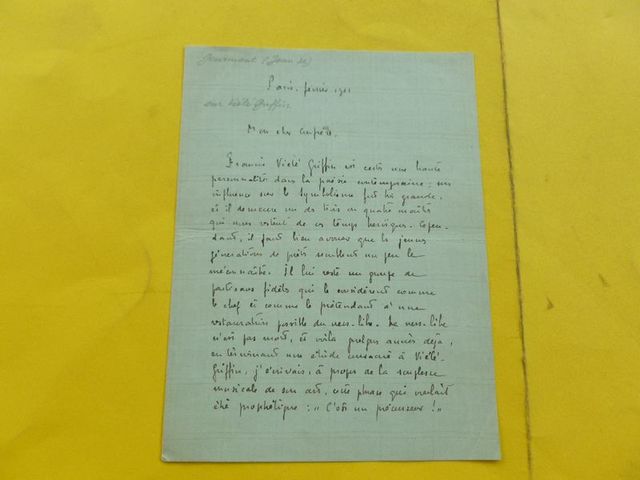 Gourmont (Jean de)
Paris. février 1921
sur Viélé Griffin
Mon cher
Francis Viélé Griffin est certes une haute
personnalité dans la poésie contemporaine : son
influence sur le symbolisme fut très grande,
et il demeure un des trois ou quatre maîtres
qui nous restent de ces temps héroïques. Cepen-
dant, il faut bien avouer que les jeunes
générations de poètes semblent un peu le
méconnaître. Il lui reste un groupe de
partisans fidèles qui le considèrent comme
le chef et comme le prétendant à une
restauration possible du vers-libre. Le vers-libre
n'est pas mort, et voilà quelques années déjà,
en terminant une étude consacrée à Viélé-
Griffin, j'écrivais, à propos de la souplesse
musicale de son art, cette phrase qui voulait
être prophétique : " C'est un précurseur ! "